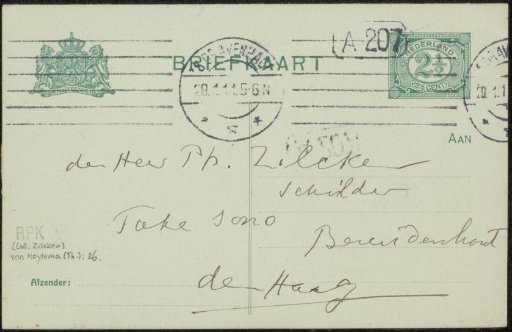 BRIEFKAART
A 207
NEDERLAND
2½
CENT
'S-GRAVENHAGE
28.1.11.5-6N
AAN
den Heer Ph. Zilcken
Schilder
Take Sono
Bezuidenhout
den Haag
RPK
(Coll. Zilcken)
van Heytema (Th.): 26.
Afzender: